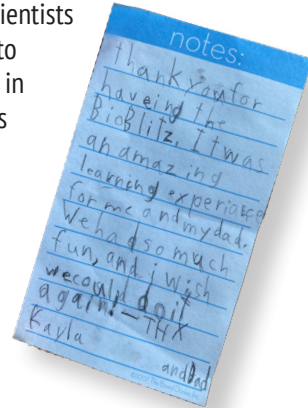 ientists
to
in
s
notes:
thank you for
haveing the
BioBlitz. It was
an amazing
learning experiance
for me and my dad.
We had so much
fun, and i wish
we could do it
again! — THX
Kayla
and Dad